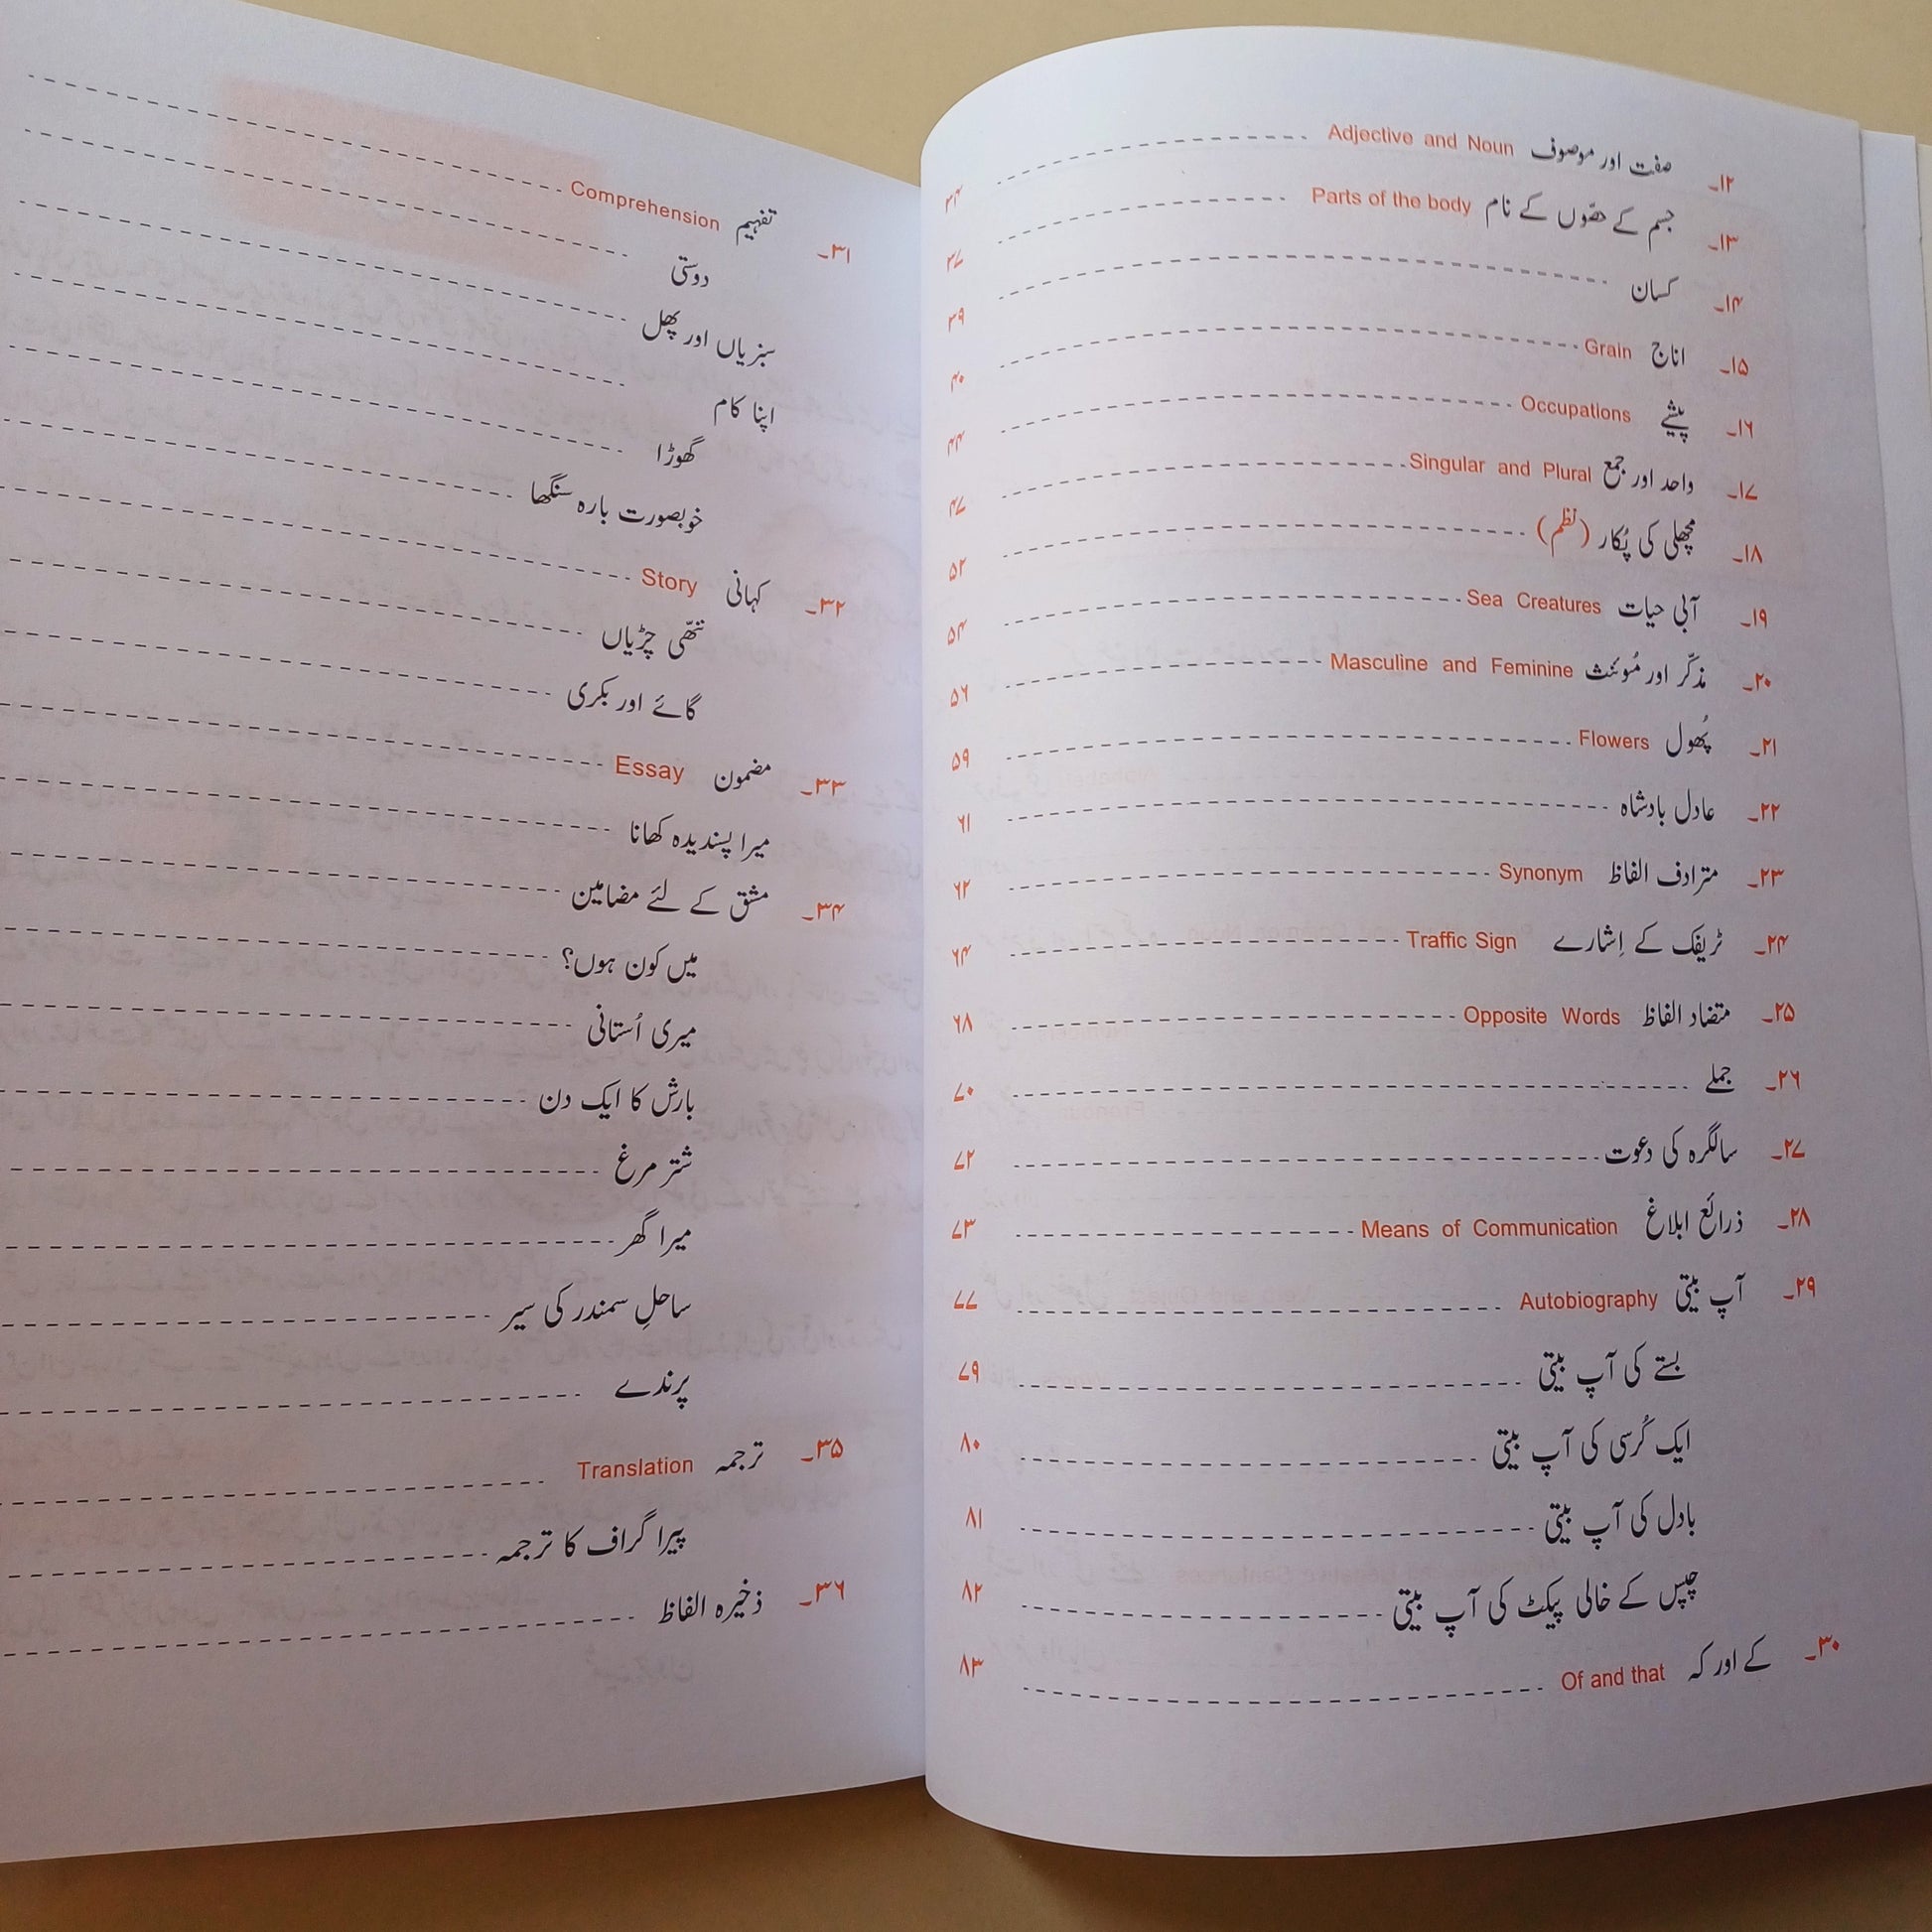 ۱۲۔ صفت اور موصوف Adjective and Noun ۳۴
۱۳۔ جسم کے حصّوں کے نام Parts of the body ۳۷
۱۴۔ کسان ۳۹
۱۵۔ اناج Grain ۴۰
۱۶۔ پیشے Occupations ۴۴
۱۷۔ واحد اور جمع Singular and Plural ۴۷
۱۸۔ مچھلی کی پُکار (نظم) ۵۲
۱۹۔ آبی حیات Sea Creatures ۵۴
۲۰۔ مذکّر اور مُونٔث Masculine and Feminine ۵۶
۲۱۔ پُھول Flowers ۵۹
۲۲۔ عادل بادشاہ ۶۱
۲۳۔ مترادف الفاظ Synonym ۶۲
۲۴۔ ٹریفک کے اِشارے Traffic Sign ۶۴
۲۵۔ متضاد الفاظ Opposite Words ۶۸
۲۶۔ جملے ۷۰
۲۷۔ سالگرہ کی دعوت ۷۲
۲۸۔ ذرائع ابلاغ Means of Communication ۷۳
۲۹۔ آپ بیتی Autobiography ۷۷
بستے کی آپ بیتی ۷۹
ایک کُرسی کی آپ بیتی ۸۰
بادل کی آپ بیتی ۸۱
چپس کے خالی پیکٹ کی آپ بیتی ۸۲
۳۰۔ کے اور کہ Of and that ۸۳
۳۱۔ تفہیم Comprehension
دوستی
سبزیاں اور پھل
اپنا کام
گھوڑا
خوبصورت بارہ سنگھا
۳۲۔ کہانی Story
ننّھی چڑیاں
گائے اور بکری
۳۳۔ مضمون Essay
میرا پسندیدہ کھانا
۳۴۔ مشق کے لئے مضامین
میں کون ہوں؟
میری اُستانی
بارش کا ایک دن
شتر مرغ
میرا گھر
ساحلِ سمندر کی سیر
پرندے
۳۵۔ ترجمہ Translation
پیرا گراف کا ترجمہ
۳۶۔ ذخیرہ الفاظ